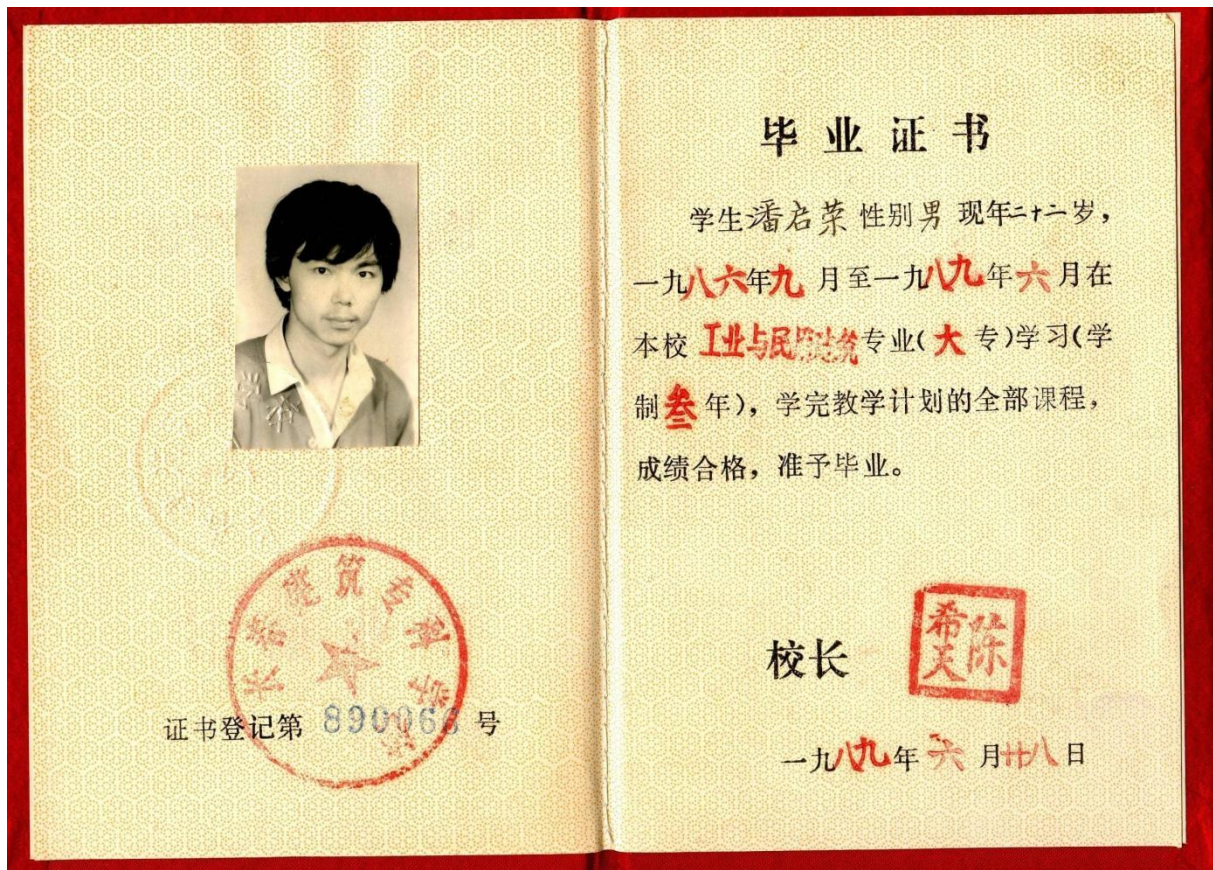 长春建筑专科学校
证书登记第 890068 号
毕业证书
学生潘启荣性别男现年二十二岁，
一九八六年九月至一九八九年六月在
本校工业与民用建筑专业(大专)学习(学
制叁年)，学完教学计划的全部课程，
成绩合格，准予毕业。
校长 陈希天
一九八九年六月廿八日